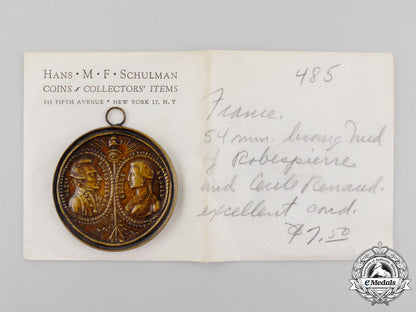 HANS · M · F · SCHULMAN
COINS & COLLECTORS' ITEMS
545 FIFTH AVENUE · NEW YORK 17, N. Y
485
France.
54 mm. bronze Med
of Robespierre
and Cecile Renaud.
excellent cond.
$7.50
eMedals